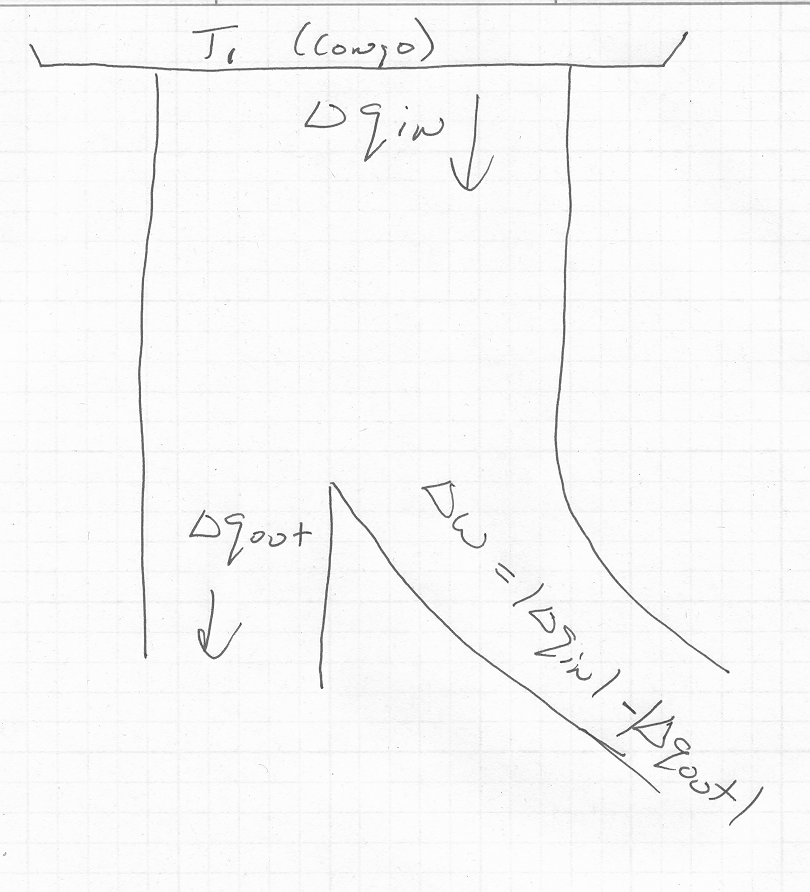 T₁ (Congo)
Δqin
Δqout
Δw = |Δqin| - |Δqout|